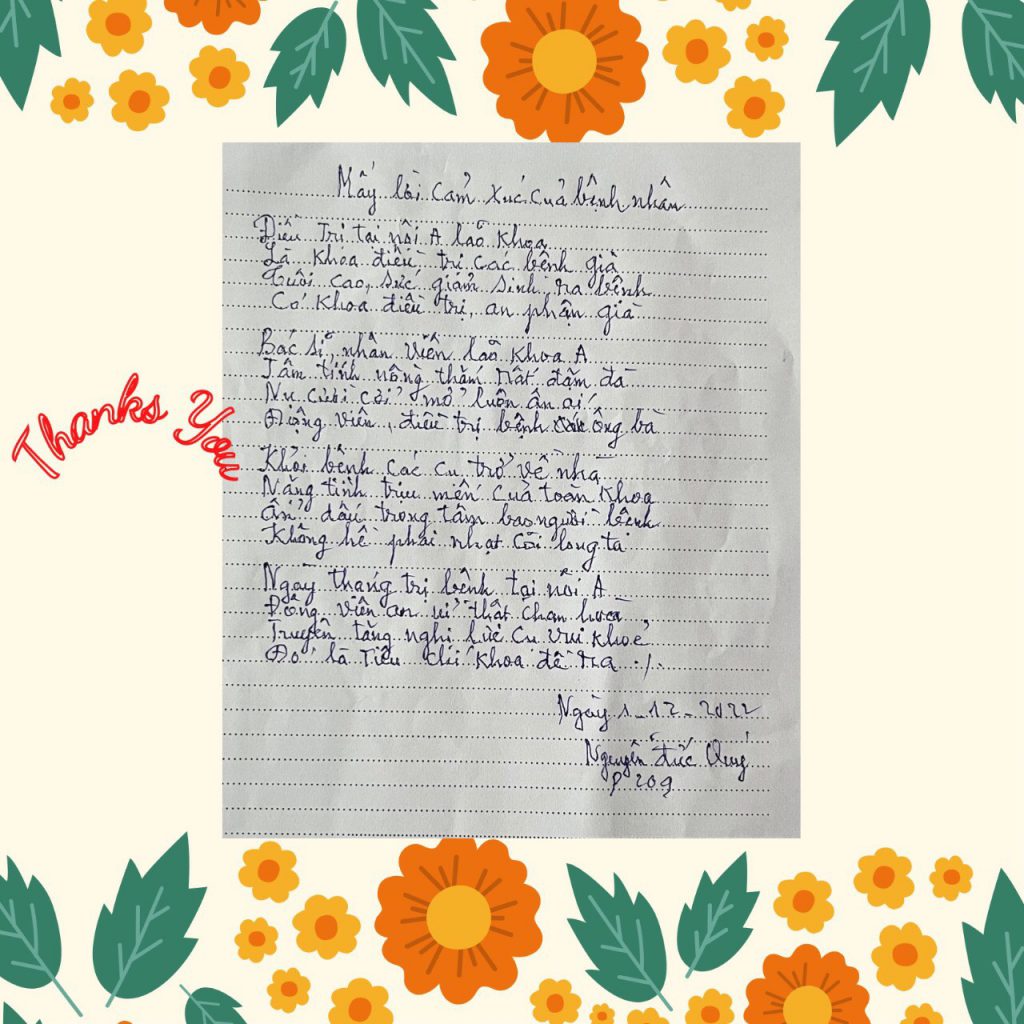 Mấy lời cảm xúc của bệnh nhân
Điều trị tại nội A lão khoa
Là khoa điều trị các bệnh già
Tuổi cao, sức giảm sinh ra bệnh
Có khoa điều trị, an phận già
Bác sĩ, nhân viên lão khoa A
Tâm tính nồng thắm rất đậm đà
Nụ cười cởi mở luôn ân ái
Động viên, điều trị bệnh ông bà
Thanks You
Khỏi bệnh các cụ trở về nhà
Nặng tình trìu mến của toàn khoa
Ẩn dấu trong tâm bao người bệnh
Không hề phai nhạt cõi lòng ta
Ngày tháng trị bệnh tại nội A
Động viên an ủi thật chan hoà
Truyền tặng nghị lực cụ vui khoẻ
Đó là Tiêu chí khoa đề ra ./.
Ngày 1-12-2022
Nguyễn Đức Quý
P 209